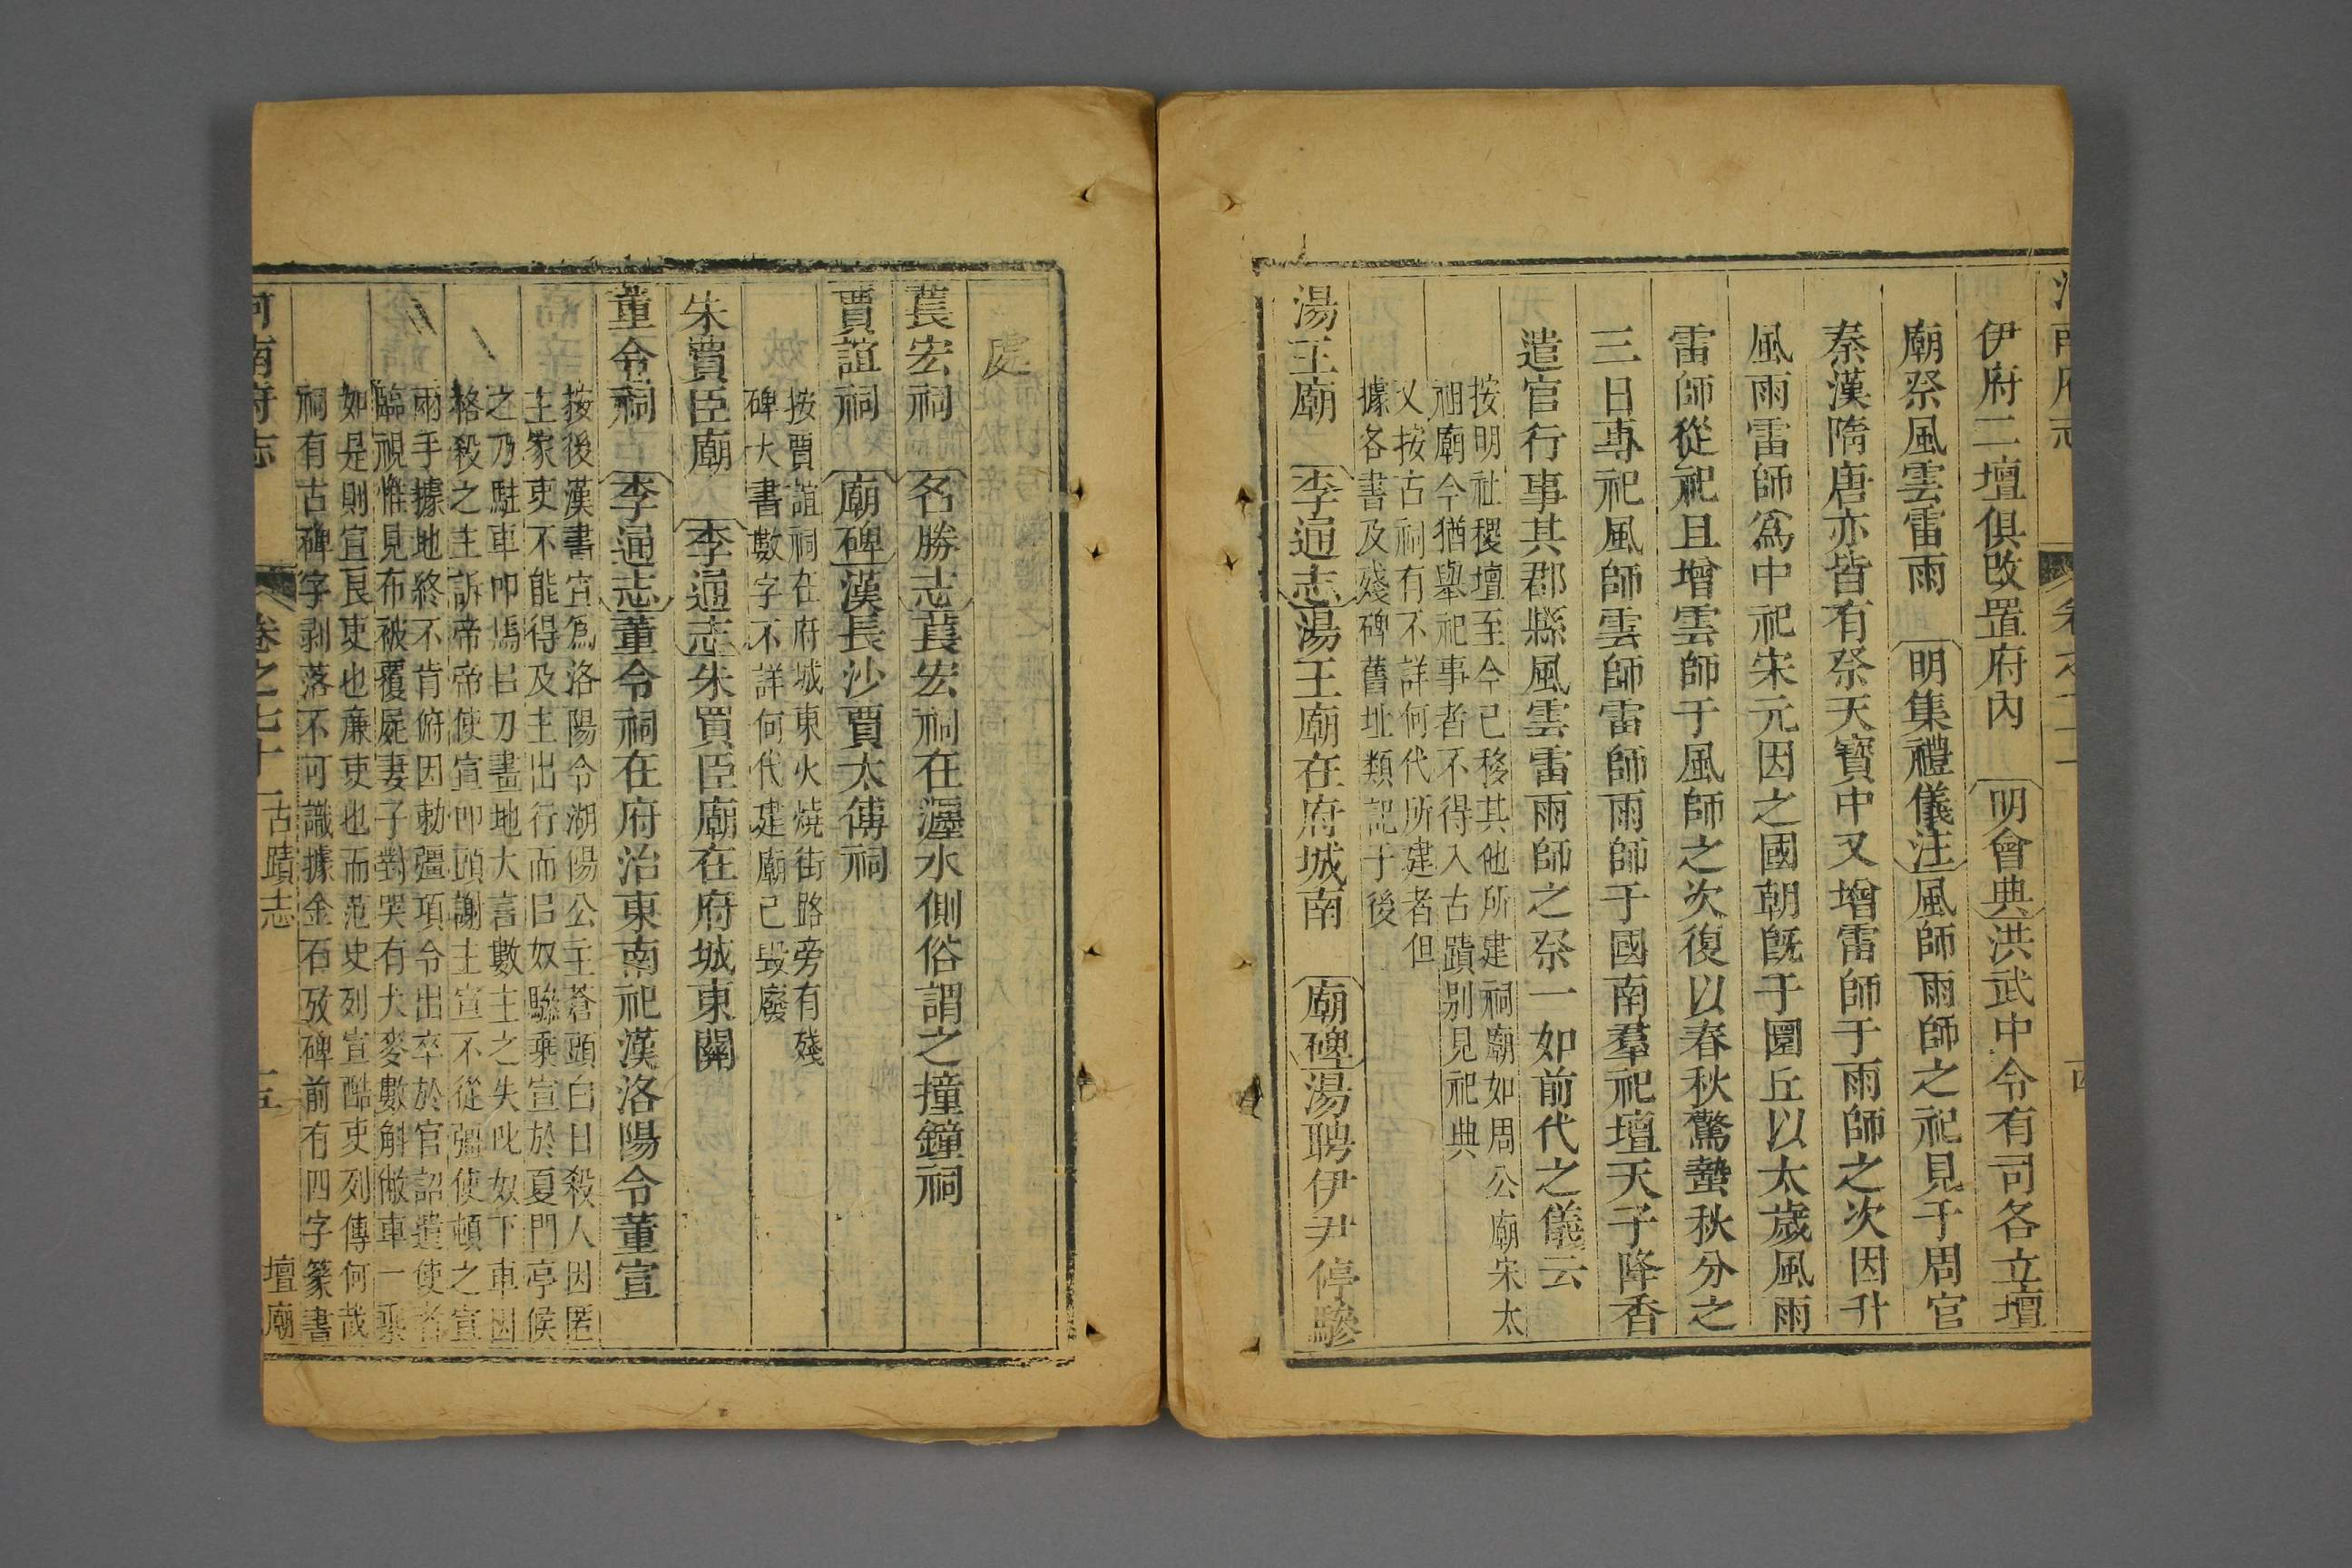 伊府二壇俱改置府內　明會典洪武中令有司各立壇
廟祭風雲雷雨　明集禮儀注風師雨師之祀見于周官
秦漢隋唐亦皆有祭天寶中又增雷師于雨師之次因升
風雨雷師爲中祀宋元因之國朝旣于圜丘以太歲風雨
雷師從祀且增雲師于風師之次復以春秋驚蟄秋分之
三日專祀風師雲師雷師雨師于國南羣祀壇天子降香
遣官行事其郡縣風雲雷雨師之祭一如前代之儀云
按明社稷壇至今已移其他所建祠廟如周公廟宋太
祖廟今猶舉祀事者不得入古蹟別見祀典
又按古祠有不詳何代所建者但
據各書及殘碑舊址類記于後
湯王廟　李通志湯王廟在府城南　廟碑湯聘伊尹停驂
處
萇宏祠　名勝志萇宏祠在瀍水側俗謂之撞鐘祠
賈誼祠　廟碑漢長沙賈太傅祠
按賈誼祠在府城東火燒街路旁有殘
碑大書數字不詳何代建廟已毀廢
朱買臣廟　李通志朱買臣廟在府城東關
董令祠　李通志董令祠在府治東南祀漢洛陽令董宣
按後漢書宣爲洛陽令湖陽公主蒼頭白日殺人因匿
主家吏不能得及主出行而㠯奴驂乘宣於夏門亭候
之乃駐車叩馬㠯刀畫地大言數主之失叱奴下車因
格殺之主訴帝帝使宣叩頭謝主宣不從彊使頓之宣
兩手據地終不肯俯因勅彊項令出卒於官詔遣使者
臨視惟見布被覆屍妻子對哭有大麥數斛敝車一乘
如是則宣良吏也廉吏也而范史列宣酷吏列傳何哉
祠有古碑字剥落不可識據金石攷碑前有四字篆書
河南府志　卷之七十　古蹟志　壇廟